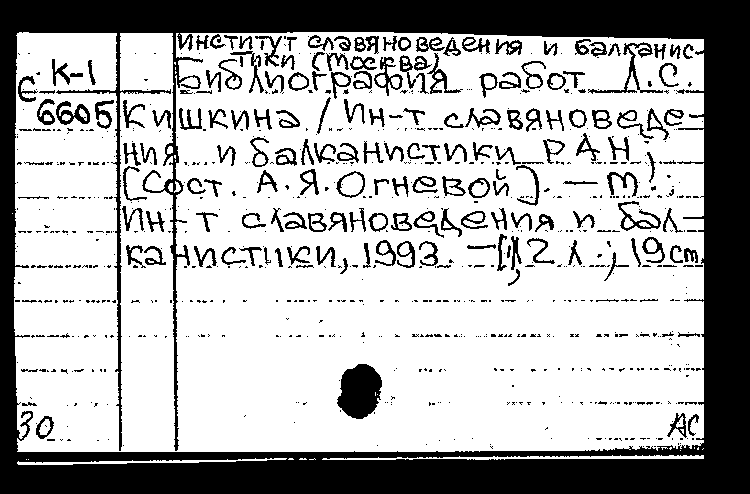 институт славяноведения и балканис-
тики (Москва)
С К-1 Библиография работ Л.С.
6605 Кишкина / Ин-т славяноведе-
ния и балканистики РАН;
[Сост. А.Я.Огневой]. — М.:
Ин-т славяноведения и бал-
канистики, 1993. — [1], 2 л.; 19 cm.
30 АС